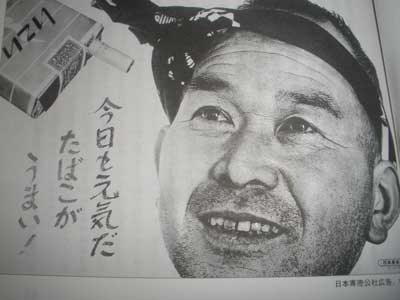 いこい
今日も元気だ
たばこが
うまい!
日本専売公社広告、